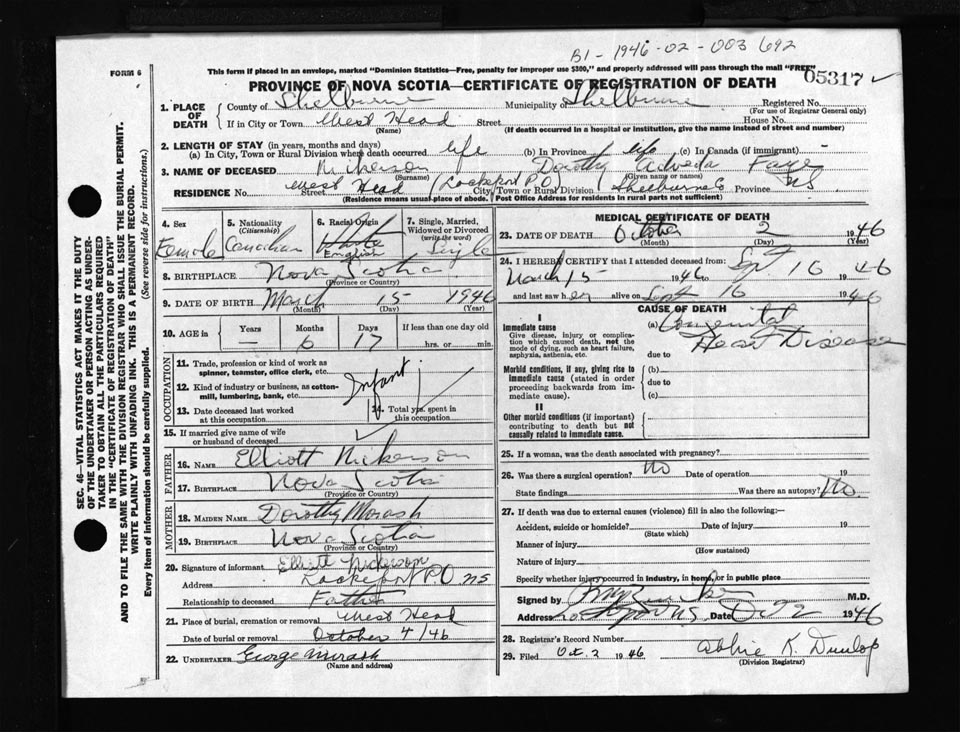 B1-1946-02-003692
FORM 6
This form if placed in an envelope, marked "Dominion Statistics—Free, penalty for improper use $300," and properly addressed will pass through the mail "FREE"
05317
PROVINCE OF NOVA SCOTIA—CERTIFICATE OF REGISTRATION OF DEATH
1. PLACE OF DEATH County of Shelburne Municipality of Shelburne Registered No.
(For use of Registrar General only)
If in City or Town West Head Street House No.
(Name) (If death occurred in a hospital or institution, give the name instead of street and number)
2. LENGTH OF STAY (in years, months and days)
(a) In City, Town or Rural Division where death occurred life (b) In Province life (c) In Canada (if immigrant)
3. NAME OF DECEASED Nickerson Dorothy Faye
(Surname) (Given name or names)
RESIDENCE No. West Head Street (Lockeport P.O. City, Town or Rural Division Shelburne Co Province NS
(Residence means usual place of abode. Post Office Address for residents in rural parts not sufficient)
4. Sex Female
5. Nationality (Citizenship) Canadian
6. Racial Origin White English
7. Single, Married, Widowed or Divorced (write the word) Single
8. BIRTHPLACE Nova Scotia
(Province or Country)
9. DATE OF BIRTH March 15 1946
(Month) (Day) (Year)
10. AGE in Years — Months 6 Days 17 If less than one day old hrs. or min.
OCCUPATION
11. Trade, profession or kind of work as spinner, teamster, office clerk, etc.
12. Kind of industry or business, as cotton-mill, lumbering, bank, etc. Infant
13. Date deceased last worked at this occupation
14. Total yrs. spent in this occupation
15. If married give name of wife or husband of deceased
FATHER
16. NAME Elliott Nickerson
17. BIRTHPLACE Nova Scotia
(Province or Country)
MOTHER
18. MAIDEN NAME Dorothy Morash
19. BIRTHPLACE Nova Scotia
(Province or Country)
20. Signature of informant Elliott Nickerson
Address Lockeport P.O NS
Relationship to deceased Father
21. Place of burial, cremation or removal West Head
Date of burial or removal October 4/46
22. UNDERTAKER George Morash
(Name and address)
MEDICAL CERTIFICATE OF DEATH
23. DATE OF DEATH October 2 1946
(Month) (Day) (Year)
24. I HEREBY CERTIFY that I attended deceased from:
March 15 1946 to Sept 16 1946
and last saw her alive on Sept 16 1946
CAUSE OF DEATH
I
Immediate cause (a) Congenital Heart Disease
Give disease, injury or complication which caused death, not the mode of dying, such as heart failure, asphyxia, asthenia, etc.
due to
Morbid conditions, if any, giving rise to immediate cause (stated in order proceeding backwards from immediate cause).
(b)
due to
(c)
II
Other morbid conditions (if important) contributing to death but not causally related to immediate cause.
25. If a woman, was the death associated with pregnancy?
26. Was there a surgical operation? No Date of operation 19
State findings Was there an autopsy? No
27. If death was due to external causes (violence) fill in also the following:—
Accident, suicide or homicide? Date of injury 19
(State which)
Manner of injury
(How sustained)
Nature of injury
Specify whether injury occurred in industry, in home, or in public place
Signed by M.D.
Address Date Oct 2 1946
28. Registrar's Record Number
29. Filed Oct. 2 1946 Abbie K. Dunlop
(Division Registrar)
SEC. 46—VITAL STATISTICS ACT MAKES IT THE DUTY
OF THE UNDERTAKER OR PERSON ACTING AS UNDER-
TAKER TO OBTAIN ALL THE PARTICULARS REQUIRED
IN THE "CERTIFICATE OF REGISTRATION OF DEATH"
AND TO FILE THE SAME WITH THE DIVISION REGISTRAR WHO SHALL ISSUE THE BURIAL PERMIT.
WRITE PLAINLY WITH UNFADING INK. THIS IS A PERMANENT RECORD.
Every item of information should be carefully supplied. (See reverse side for instructions.)